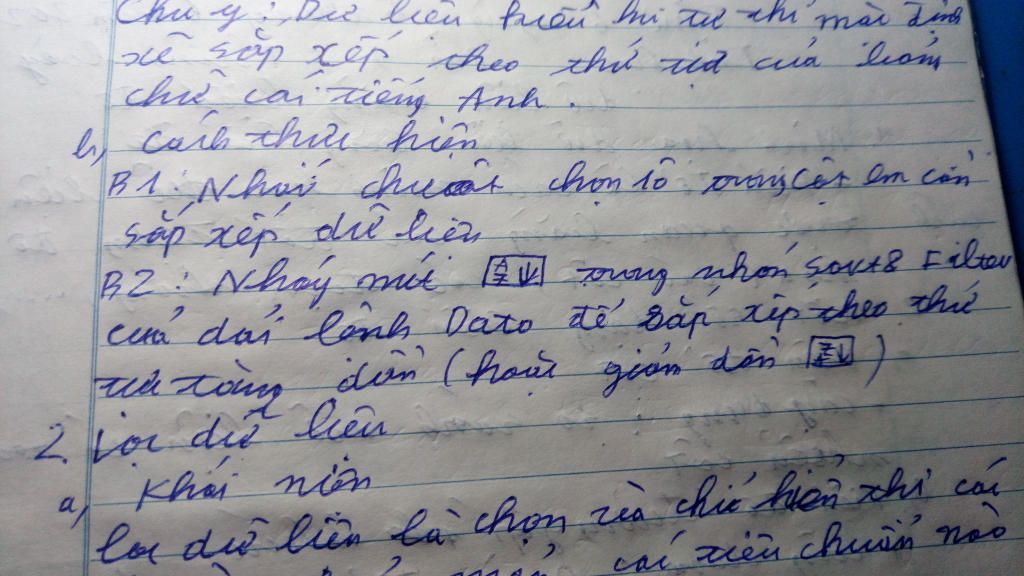 Chú ý: Dữ liệu kiểu kí tự thì mặc định
sẽ sắp xếp theo thứ tự của bảng
chữ cái tiếng Anh.
b, Cách thức hiện
B1: Nháy chuột chọn 1ô trong cột em cần
sắp xếp dữ liệu
B2: Nháy nút AZ↓ trong nhóm Sort & Filter
của dải lệnh Data để sắp xếp theo thứ
tự tăng dần (hoặc giảm dần ZA↓)
2. Lọc dữ liệu
a, Khái niệm
lọc dữ liệu là chọn và chỉ hiển thị các
các tiêu chuẩn nào